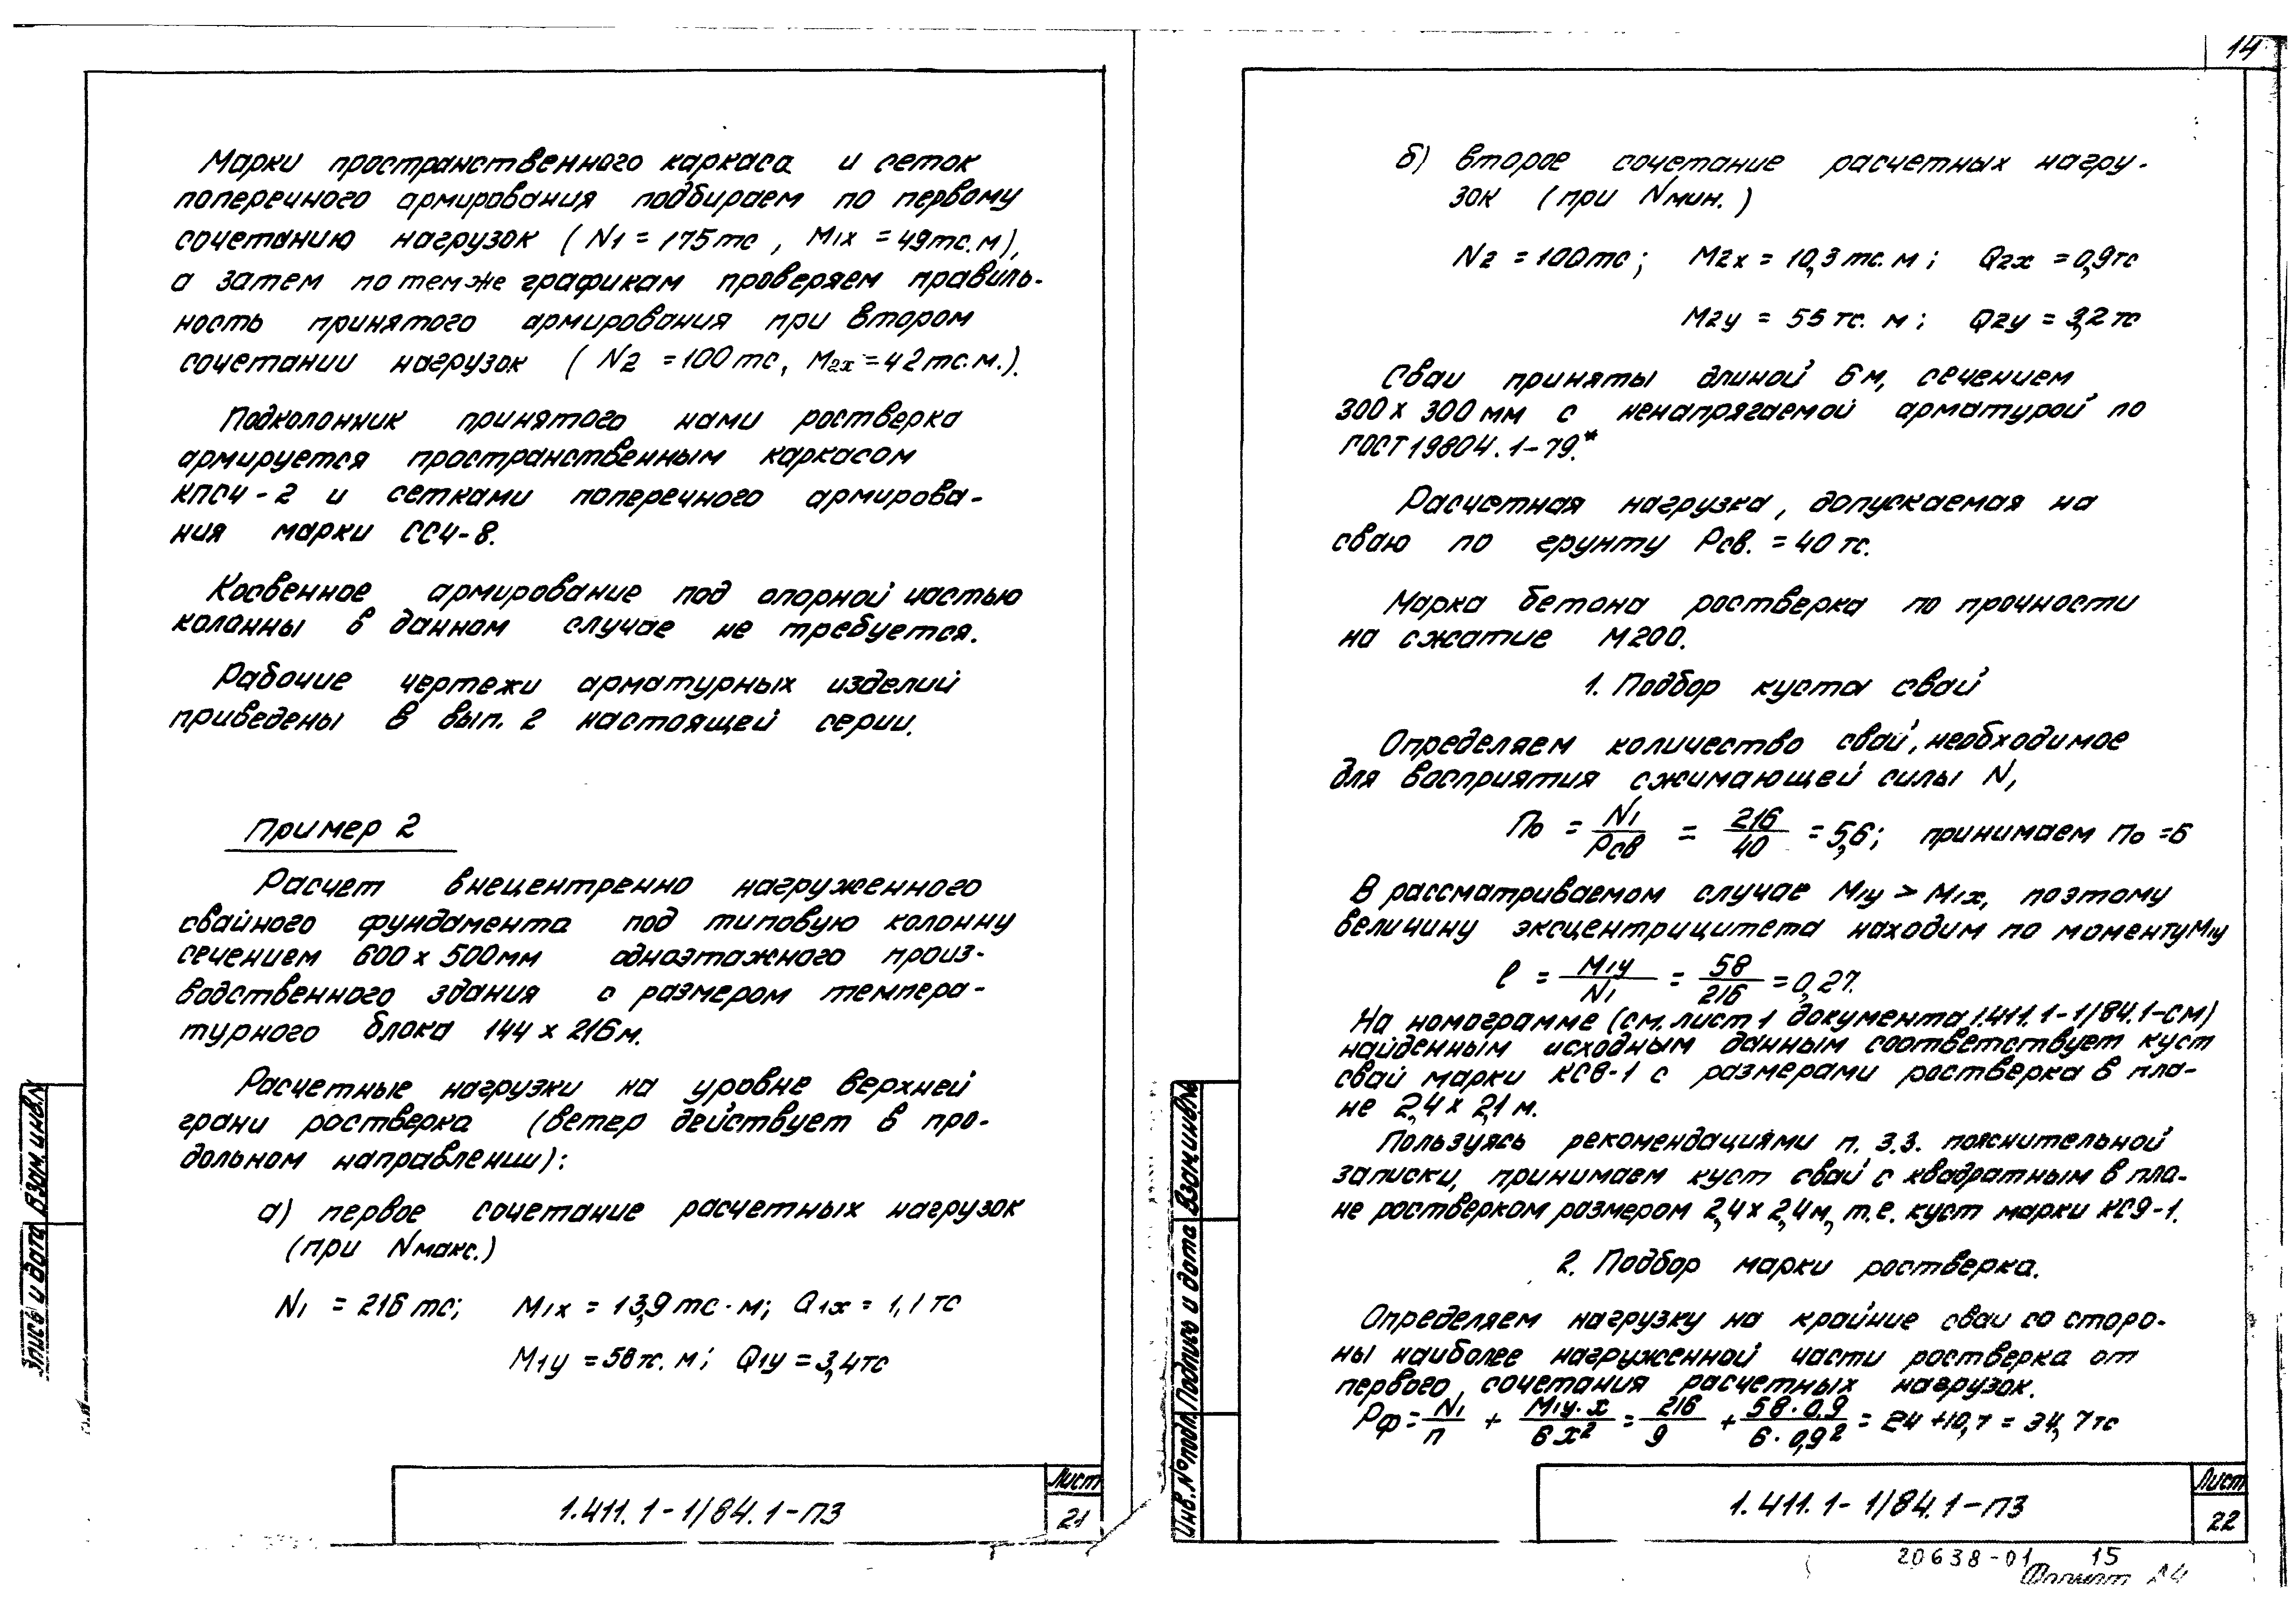 14
Марки пространственного каркаса и сеток
поперечного армирования подбираем по первому
сочетанию нагрузок (N1 = 175тс, M1x = 49тс.м),
а затем по тем же графикам проверяем правиль-
ность принятого армирования при втором
сочетании нагрузок (N2 = 100тс, M2x = 42тс.м.).
Подколонник принятого нами ростверка
армируется пространственным каркасом
КПС4-2 и сетками поперечного армирова-
ния марки СС4-8.
Косвенное армирование под опорной частью
колонны в данном случае не требуется.
Рабочие чертежи арматурных изделий
приведены в вып. 2 настоящей серии.
Пример 2
Расчет внецентренно нагруженного
свайного фундамента под типовую колонну
сечением 600 х 500мм одноэтажного произ-
водственного здания с размером темпера-
турного блока 144 х 216м.
Расчетные нагрузки на уровне верхней
грани ростверка (ветер действует в про-
дольном направлении):
а) первое сочетание расчетных нагрузок
(при Nмакс.)
N1 = 216 тс; M1x = 13,9 тс·м; Q1x = 1,1 тс
M1y = 58 тс. м; Q1y = 3,4тс
1.411.1-1/84.1-ПЗ
Лист
21
б) второе сочетание расчетных нагру-
зок (при Nмин.)
N2 = 100тс; M2x = 10,3 тс. м; Q2x = 0,9тс
M2y = 55 тс. м; Q2y = 3,2 тс
Сваи приняты длиной 6м, сечением
300 х 300 мм с ненапрягаемой арматурой по
ГОСТ 19804.1-79.*
Расчетная нагрузка, допускаемая на
сваю по грунту Рсв. = 40 тс.
Марка бетона ростверка по прочности
на сжатие М200.
1. Подбор куста свай
Определяем количество свай, необходимое
для восприятия сжимающей силы N1
По = N1/Рсв = 216/40 = 5,6; принимаем По = 6
В рассматриваемом случае M1y > M1x, поэтому
величину эксцентрицитета находим по моменту M1y
e = M1y/N1 = 58/216 = 0,27.
На номограмме (см. лист 1 документа 1.411.1-1/84.1-СМ)
найденным исходным данным соответствует куст
свай марки КС8-1 с размерами ростверка в пла-
не 2,4 х 2,1 м.
Пользуясь рекомендациями п. 3.3. пояснительной
записки, принимаем куст свай с квадратным в пла-
не ростверком размером 2,4 х 2,4м, т.е. куст марки КС9-1.
2. Подбор марки ростверка.
Определяем нагрузку на крайние сваи со сторо-
ны наиболее нагруженной части ростверка от
первого сочетания расчетных нагрузок.
Рф = N1/п + M1y·x/6x² = 216/9 + 58·0,9/6·0,9² = 24 + 10,7 = 34,7тс
1.411.1-1/84.1-ПЗ
Лист
22
Взам.инв.N
Взам.инв.N
Подпись и дата
Инв.№подл.
20638-01 15
Формат А4